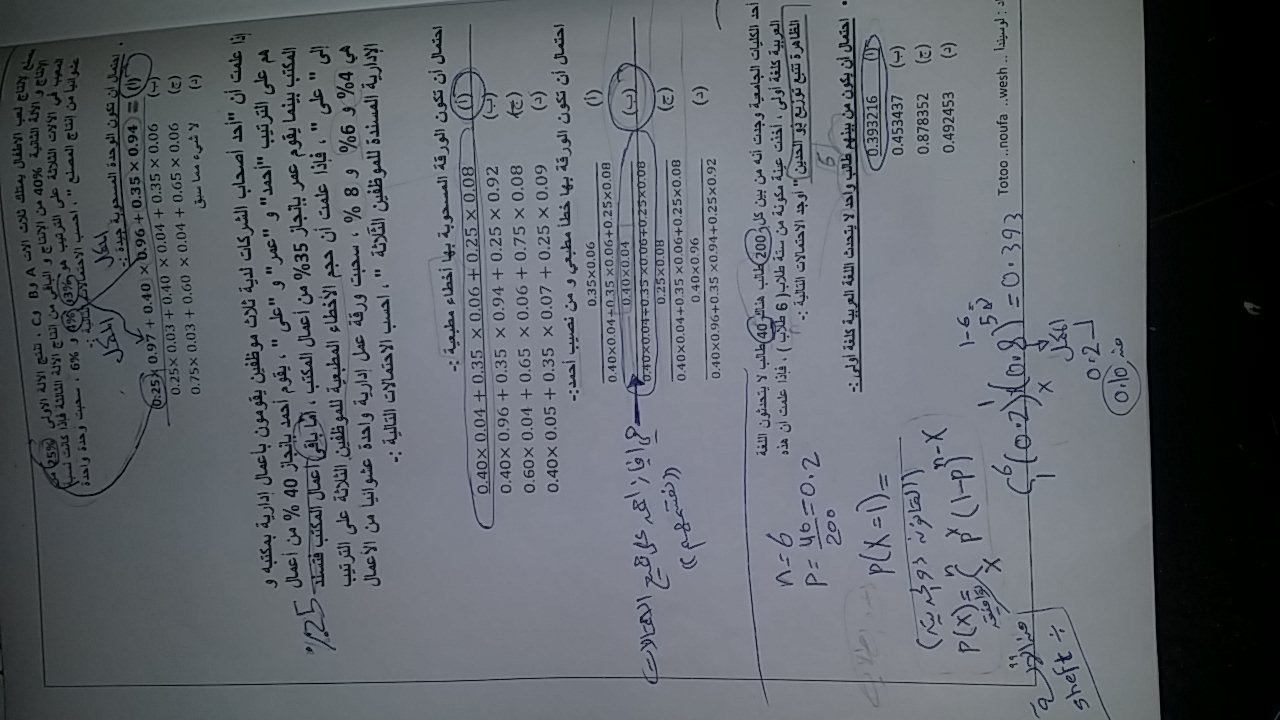 مصنع لإنتاج لعب الأطفال يمتلك ثلاث آلات A و B و C ، تنتج الآلة الأولى 25% من
الإنتاج و الآلة الثانية 40% من الإنتاج و الباقي من إنتاج الآلة الثالثة فإذا كانت نسبة
المعيب في الآلات الثلاثة على الترتيب هو 3% و 4% و 6% ، سحبت وحدة واحدة
عشوائيا من إنتاج المصنع " ، احسب الاحتمالات التالية :-
احتمال أن تكون الوحدة المسحوبة جيدة :-
المكمل
المكمل
(أ) = 0.25 × 0.97 + 0.40 × 0.96 + 0.35 × 0.94
(ب) 0.25 × 0.03 + 0.40 × 0.04 + 0.35 × 0.06
(ج) 0.75 × 0.03 + 0.60 × 0.04 + 0.65 × 0.06
(د) لا شيء مما سبق
إذا علمت أن "أحد أصحاب الشركات لدية ثلاث موظفين يقومون باعمال إدارية بمكتبه و
هم على الترتيب "أحمد" و "عمر" و "على" ، يقوم أحمد بانجاز 40 % من أعمال
المكتب بينما يقوم عمر بانجاز 35% من أعمال المكتب ، أما باقي أعمال المكتب فتسند
%25
إلى " على " ، فإذا علمت أن حجم الأخطاء المطبعية للموظفين الثلاثة على الترتيب
هي 4% و 6% و 8 % ، سحبت ورقة عمل إدارية واحدة عشوائيا من الأعمال
الإدارية المسندة للموظفين الثلاثة " ، احسب الاحتمالات التالية :-
احتمال أن تكون الورقة المسحوبة بها أخطاء مطبعية :-
(أ) 0.40 × 0.04 + 0.35 × 0.06 + 0.25 × 0.08
(ب) 0.40 × 0.96 + 0.35 × 0.94 + 0.25 × 0.92
(ج) 0.60 × 0.04 + 0.65 × 0.06 + 0.75 × 0.08
(د) 0.40 × 0.05 + 0.35 × 0.07 + 0.25 × 0.09
احتمال أن تكون الورقة بها خطأ مطبعي و من نصيب أحمد:-
(أ) 0.35×0.06
0.40×0.04+0.35×0.06+0.25×0.08
(ب) 0.40×0.04
0.40×0.04+0.35×0.06+0.25×0.08
(ج) 0.25×0.08
0.40×0.04+0.35×0.06+0.25×0.08
(د) 0.40×0.96
0.40×0.96+0.35×0.94+0.25×0.92
أحد الكليات الجامعية وجدت أنه من بين كل 200 طالب هنالك 40 طالب لا يتحدثون اللغة
العربية كلغة أولى ، أخذت عينة مكونة من ستة طلاب ( 6 طلاب ) ، فإذا علمت ان هذه
الظاهرة تتبع توزيع ذو الحدين " أوجد الاحتمالات التالية :-
n = 6
P = 40/200 = 0.2
• احتمال أن يكون من بينهم طالب واحد لا يتحدث اللغة العربية كلغة أولى :-
(أ) 0.393216
(ب) 0.453437
(ج) 0.878352
(د) 0.492453
P(X=1) =
(القانون ذو الحدين)
P(X) = C n x P^x (1-P)^n-x
6-1
C 6 1 (0.2)^1 × (0.8)^5 = 0.393
المكمل
0.2
0.10
sheft ÷
Totoo ..noufa ..wesh ..